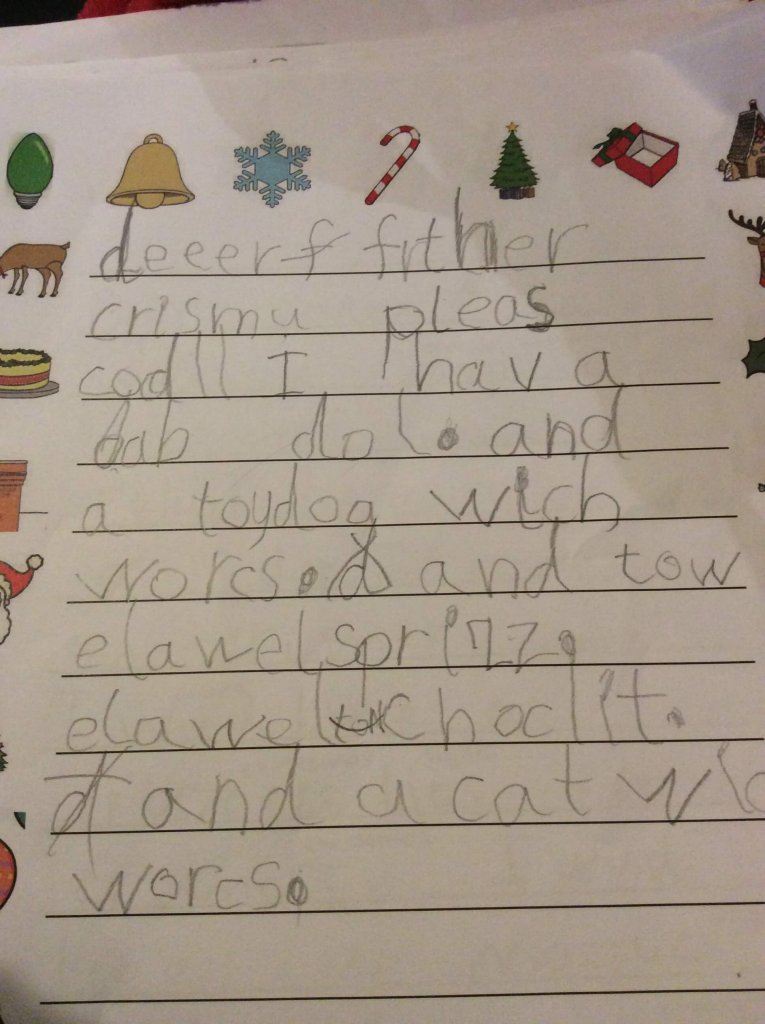 deeerf frther
crismu pleas
codll I hav a
bab dol. and
a toydog wich
worcs. and tow
elawel sprizz.
elawel choclit.
and a cat wic
worcs.